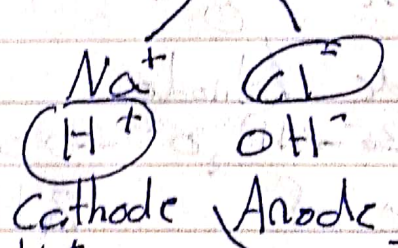 Na⁺ Cl⁻
H⁺ OH⁻
Cathode Anode